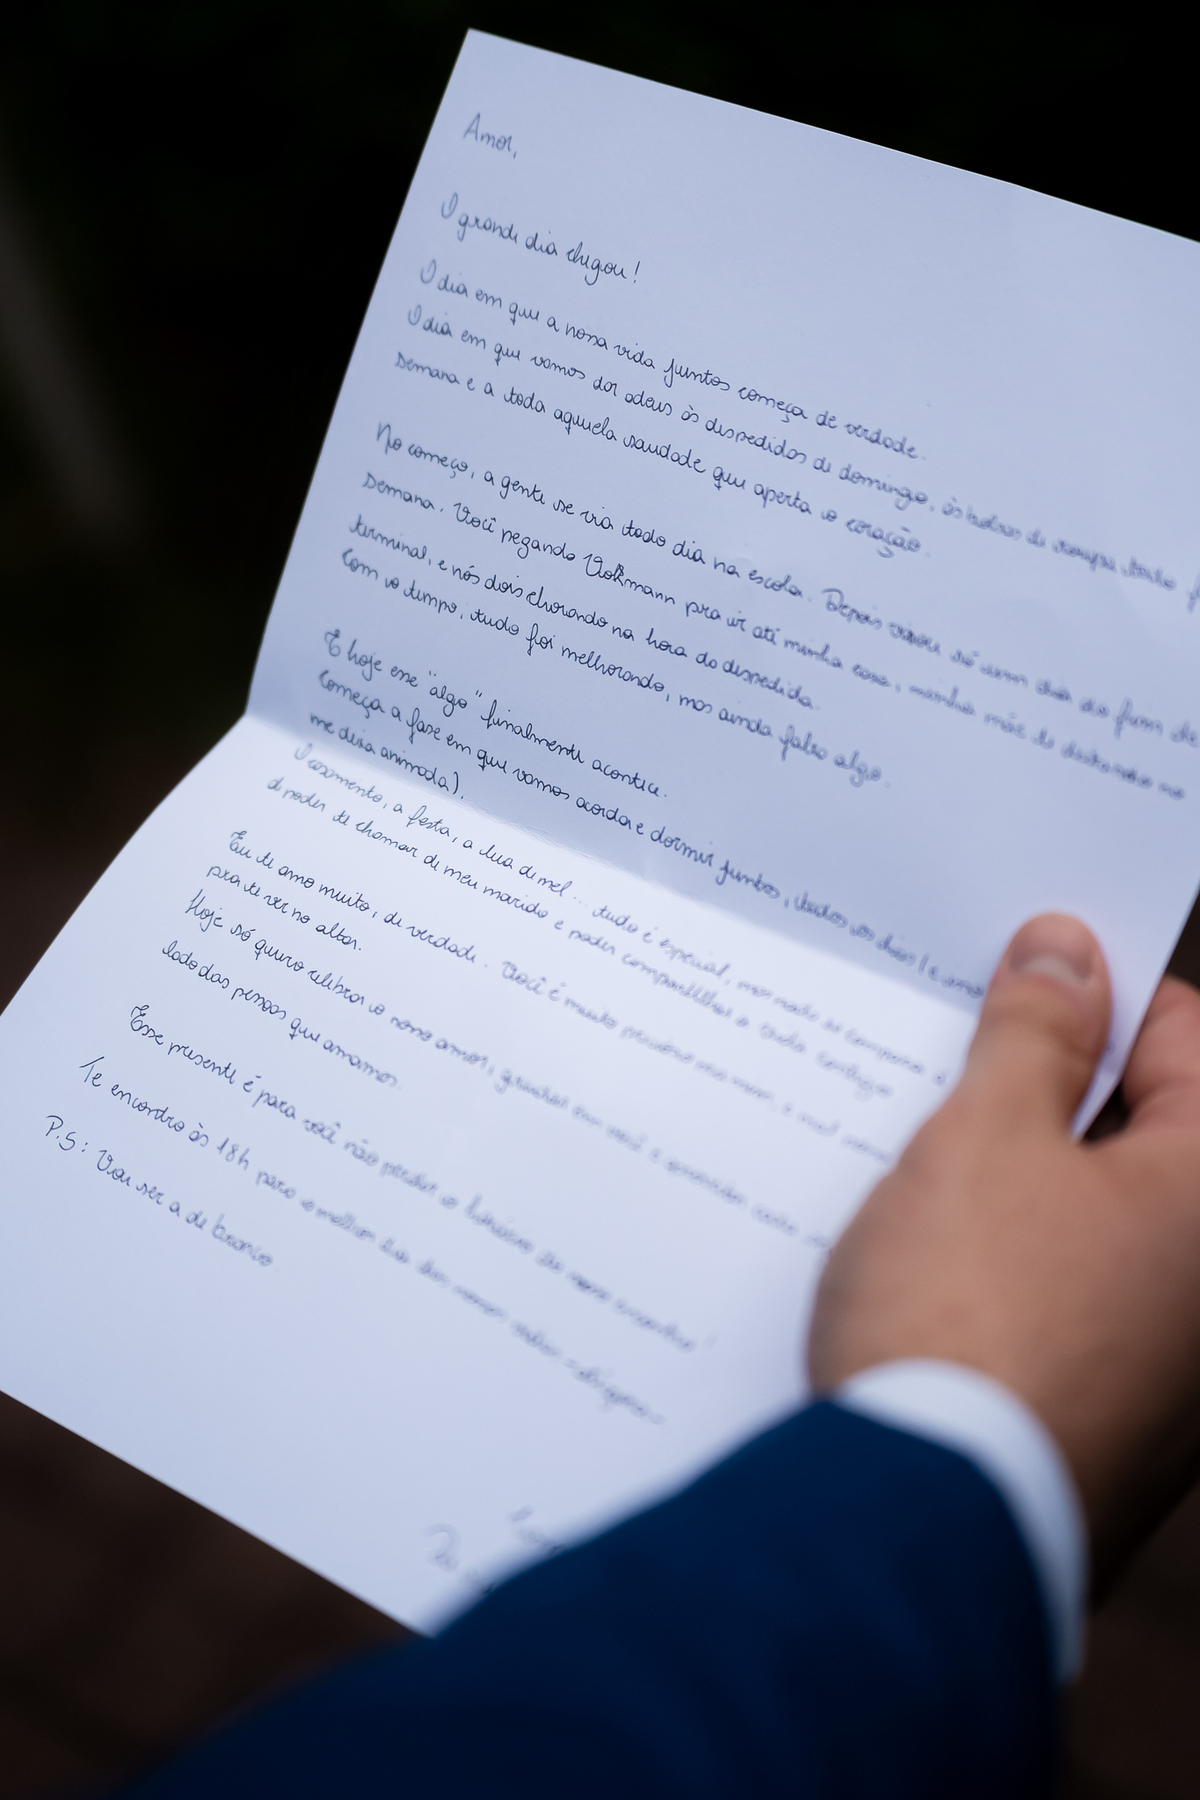 Amor,
O grande dia chegou!
O dia em que a nossa vida juntos começa de verdade.
O dia em que vamos dar adeus às despedidas de domingo, às
semana e a toda aquela saudade que aperta o coração.
No começo, a gente se via todo dia na escola. Depois virou só um dia do fim de
semana. Você pegando Volkmann pra ir até minha casa, minha mãe te
terminal, e nós dois chorando na hora da despedida.
Com o tempo, tudo foi melhorando, mas ainda falta algo.
E hoje esse "algo" finalmente acontece.
Começa a fase em que vamos acordar e dormir juntos, todos os dias (e
me deixa animada).
O casamento, a festa, a lua de mel... tudo é especial, mas nada se compara a
de poder te chamar de meu marido e poder compartilhar a vida contigo
Eu te amo muito, de verdade. Você é muito precioso
pra te ver no altar.
Hoje só quero celebrar o nosso amor,
lado das pessoas que amamos.
Esse presente é para você não perder o horário do nosso encontro!
Te encontro às 18h para o melhor dia das nossas vidas
P.S: Vou ser a de branco